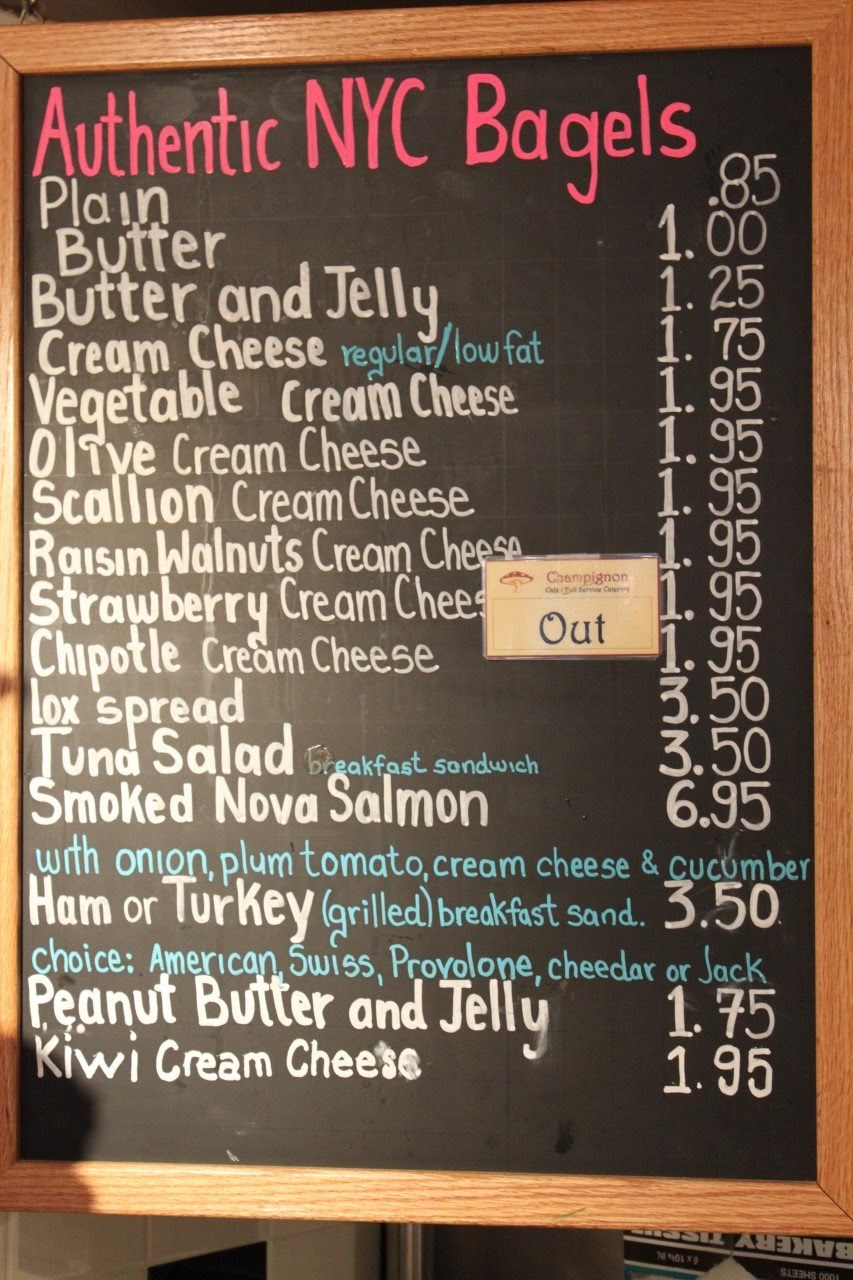 Authentic NYC Bagels
Plain .85
Butter 1.00
Butter and Jelly 1.25
Cream Cheese regular/low fat 1.75
Vegetable Cream Cheese 1.95
Olive Cream Cheese 1.95
Scallion Cream Cheese 1.95
Raisin Walnuts Cream Cheese 1.95
Strawberry Cream Chees 1.95
Champignon
Café / Full Service Catering
Out
Chipotle Cream Cheese 1.95
lox spread 3.50
Tuna Salad breakfast sandwich 3.50
Smoked Nova Salmon 6.95
with onion, plum tomato, cream cheese & cucumber
Ham or Turkey (grilled) breakfast sand. 3.50
choice: American, Swiss, Provolone, cheedar or Jack
Peanut Butter and Jelly 1.75
Kiwi Cream Cheese 1.95
BAKERY TISSUE
6 x 10¾ IN.
1000 SHEETS